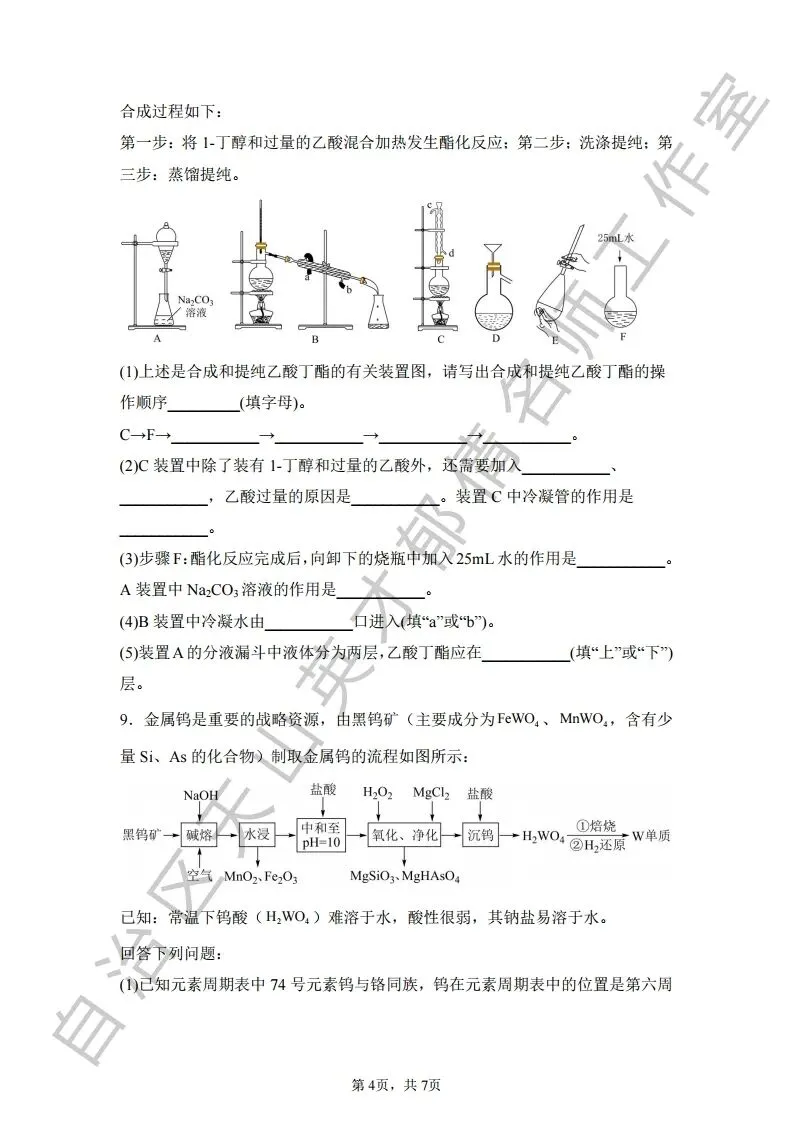 合成过程如下：
第一步：将 1-丁醇和过量的乙酸混合加热发生酯化反应；第二步：洗涤提纯；第
三步：蒸馏提纯。
c
d
25mL水
Na₂CO₃
溶液
a
b
A B C D E F
(1)上述是合成和提纯乙酸丁酯的有关装置图，请写出合成和提纯乙酸丁酯的操
作顺序_________(填字母)。
C→F→___________→___________→___________→___________。
(2)C 装置中除了装有 1-丁醇和过量的乙酸外，还需要加入___________、
___________，乙酸过量的原因是___________。装置 C 中冷凝管的作用是
___________。
(3)步骤 F：酯化反应完成后，向卸下的烧瓶中加入 25mL 水的作用是___________。
A 装置中 Na₂CO₃ 溶液的作用是___________。
(4)B 装置中冷凝水由___________口进入(填“a”或“b”)。
(5)装置 A 的分液漏斗中液体分为两层，乙酸丁酯应在___________(填“上”或“下”)
层。
9．金属钨是重要的战略资源，由黑钨矿（主要成分为FeWO₄、MnWO₄，含有少
量 Si、As 的化合物）制取金属钨的流程如图所示：
NaOH 盐酸 H₂O₂ MgCl₂ 盐酸
黑钨矿→碱熔→水浸→中和至pH=10→氧化、净化→沉钨→H₂WO₄ ①焙烧 ②H₂还原 →W单质
空气 MnO₂、Fe₂O₃ MgSiO₃、MgHAsO₄
已知：常温下钨酸（H₂WO₄）难溶于水，酸性很弱，其钠盐易溶于水。
回答下列问题：
(1)已知元素周期表中 74 号元素钨与铬同族，钨在元素周期表中的位置是第六周
第 4页，共 7页
自治区天山英才郁倩名师工作室